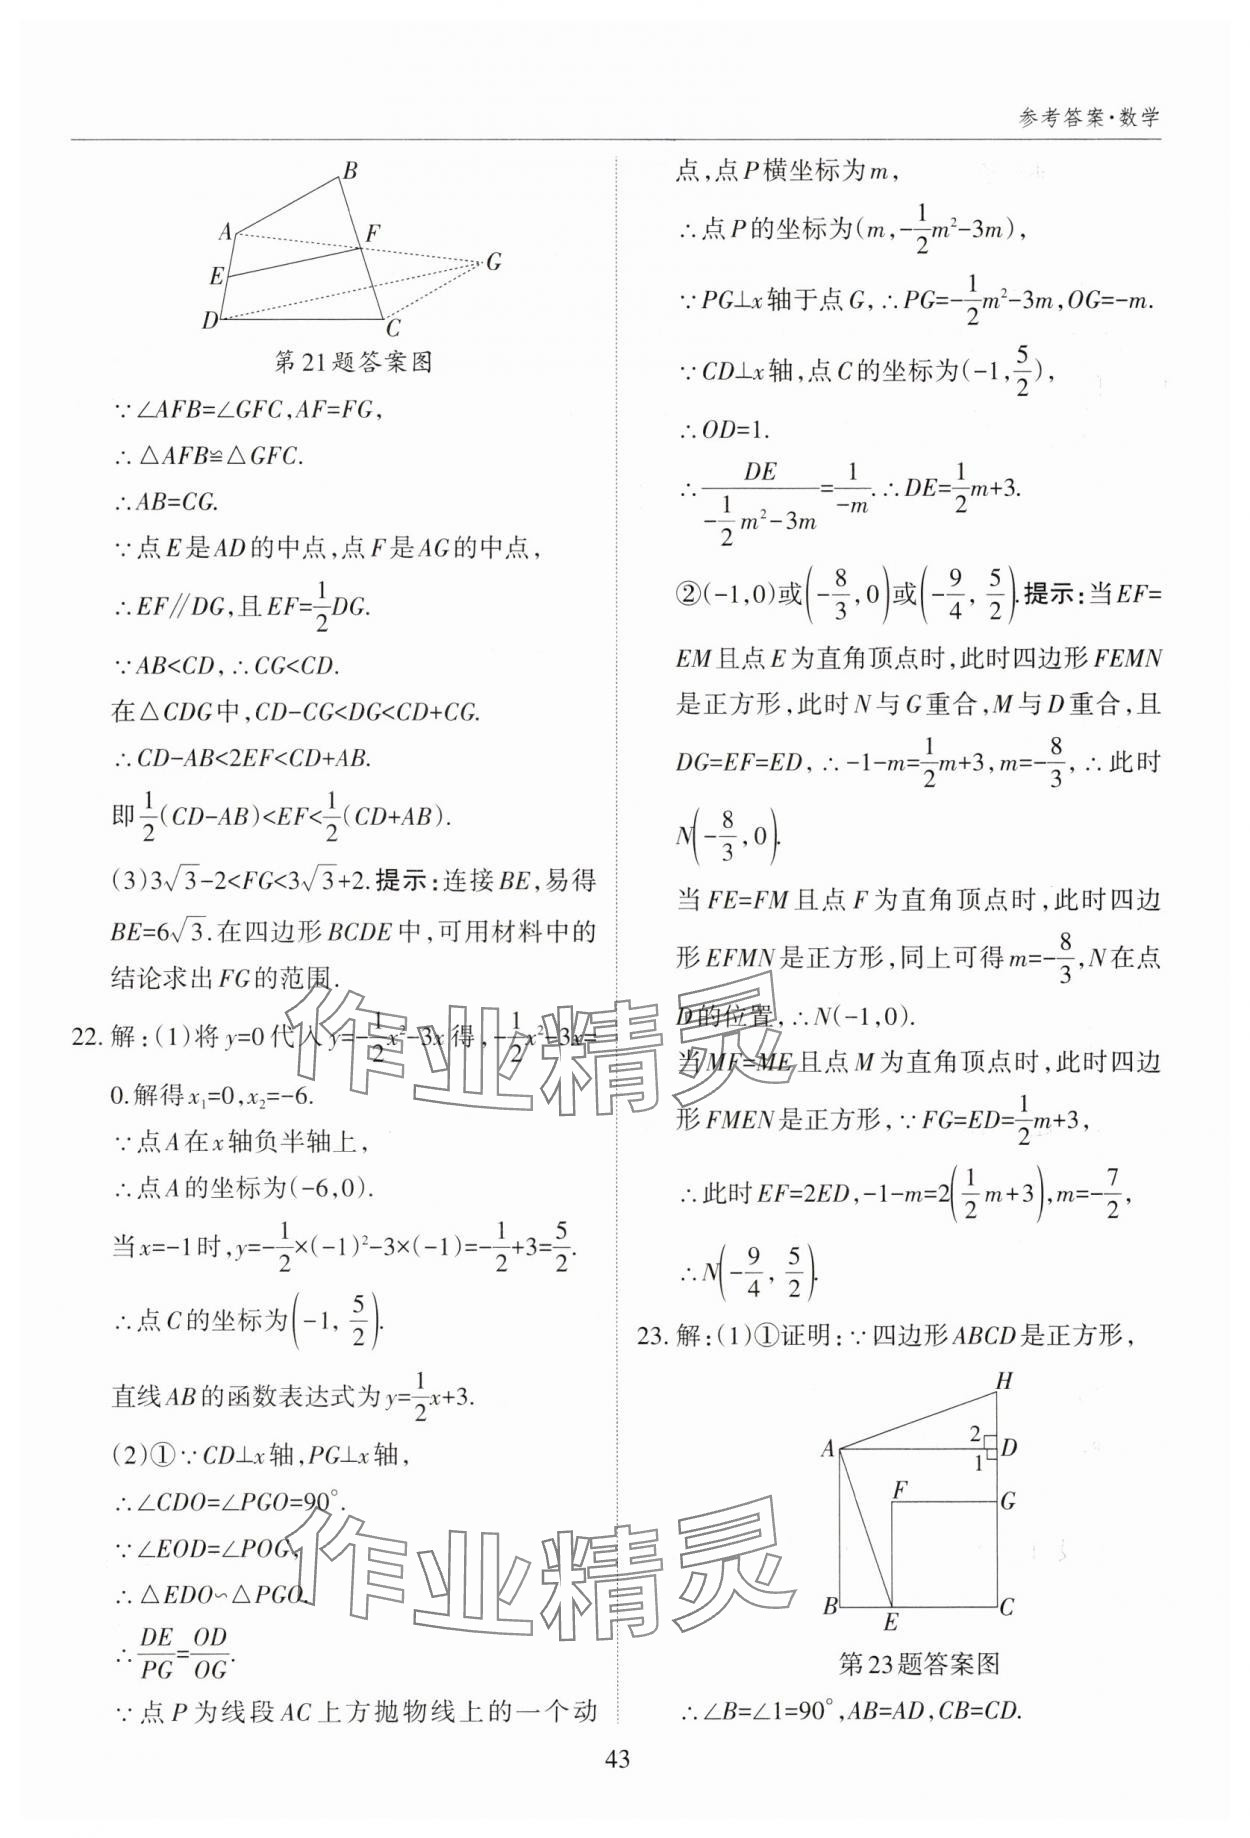 参考答案·数学
B
A
F
G
E
D
C
第21题答案图
∵∠AFB=∠GFC,AF=FG,
∴△AFB≌△GFC.
∴AB=CG.
∵点E是AD的中点,点F是AG的中点,
∴EF∥DG,且EF=1/2DG.
∵AB<CD,∴CG<CD.
在△CDG中,CD-CG<DG<CD+CG.
∴CD-AB<2EF<CD+AB.
即1/2(CD-AB)<EF<1/2(CD+AB).
(3)3√3-2<FG<3√3+2.提示:连接BE,易得
BE=6√3.在四边形BCDE中,可用材料中的
结论求出FG的范围.
22.解:(1)将y=0代入y=-1/2x²-3x得,-1/2x²-3x=
0.解得x₁=0,x₂=-6.
∵点A在x轴负半轴上,
∴点A的坐标为(-6,0).
当x=-1时,y=-1/2×(-1)²-3×(-1)=-1/2+3=5/2.
∴点C的坐标为(-1,5/2).
直线AB的函数表达式为y=1/2x+3.
(2)①∵CD⊥x轴,PG⊥x轴,
∴∠CDO=∠PGO=90°.
∵∠EOD=∠POG,
∴△EDO∽△PGO.
∴DE/PG=OD/OG.
∵点P为线段AC上方抛物线上的一个动
点,点P横坐标为m,
∴点P的坐标为(m,-1/2m²-3m),
∵PG⊥x轴于点G,∴PG=-1/2m²-3m,OG=-m.
∵CD⊥x轴,点C的坐标为(-1,5/2),
∴OD=1.
∴DE/(-1/2m²-3m)=1/-m.∴DE=1/2m+3.
②(-1,0)或(-8/3,0)或(-9/4,5/2).提示:当EF=
EM且点E为直角顶点时,此时四边形FEMN
是正方形,此时N与G重合,M与D重合,且
DG=EF=ED,∴-1-m=1/2m+3,m=-8/3,∴此时
N(-8/3,0).
当FE=FM且点F为直角顶点时,此时四边
形EFMN是正方形,同上可得m=-8/3,N在点
D的位置,∴N(-1,0).
当MF=ME且点M为直角顶点时,此时四边
形FMEN是正方形,∵FG=ED=1/2m+3,
∴此时EF=2ED,-1-m=2(1/2m+3),m=-7/2,
∴N(-9/4,5/2).
23.解:(1)①证明:∵四边形ABCD是正方形,
H
A
2
D
1
F
G
B
E
C
第23题答案图
∴∠B=∠1=90°,AB=AD,CB=CD.
43
作业精灵
作业精灵